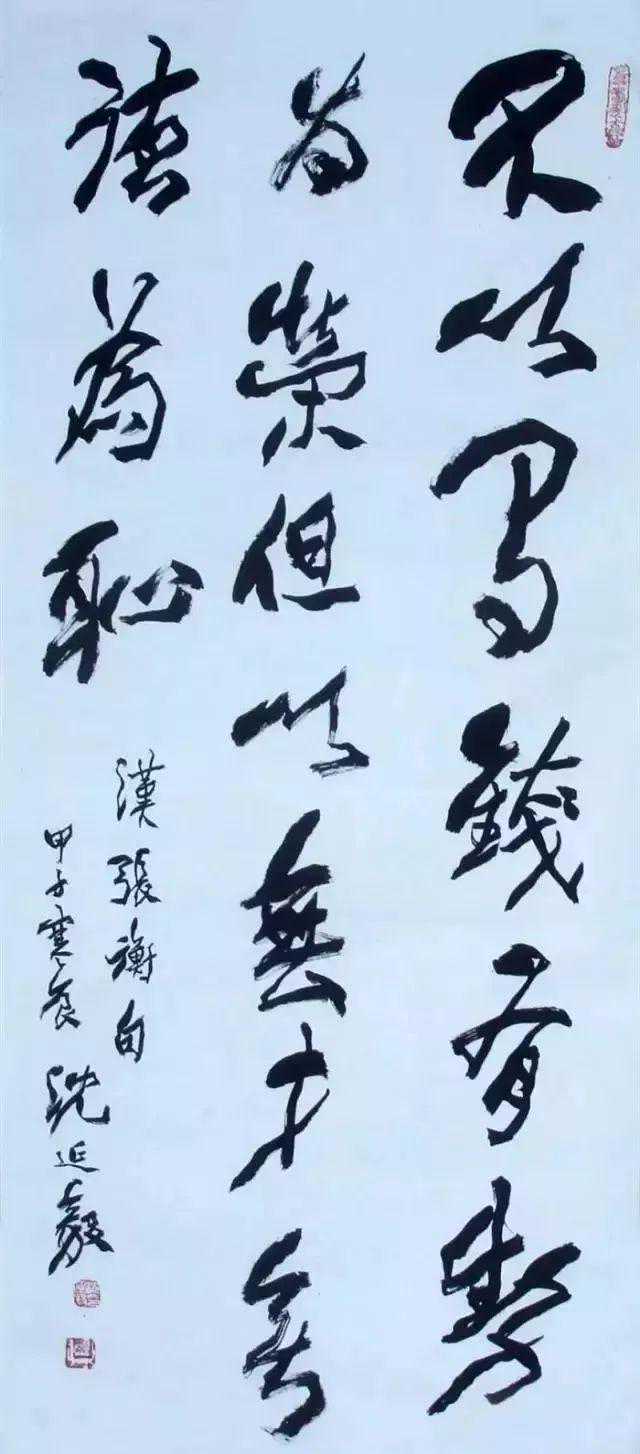 不以錢有勢
為榮但以無才無
德為恥
漢張衡句
甲子寒食沈延毅